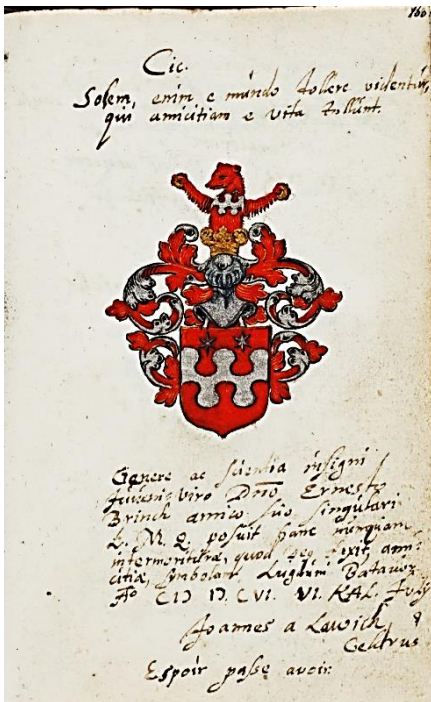 160
Cic.
Solem, enim e mundo tollere videntur,
qui amicitiam e vita tollunt.
Genere ac scientia insigni
Juveni viro Dno Ernesto
Brinck amico suo singulari
L. M. Q. posuit hanc nunquam
intermoriturae, quod fixit, ami
citiae, symbolam Lugduni Batavor
Ao CIƆ IƆ CVI. VI. KAL. July
Joannes a Lawick
Gelrus
Espoir passe avoir.